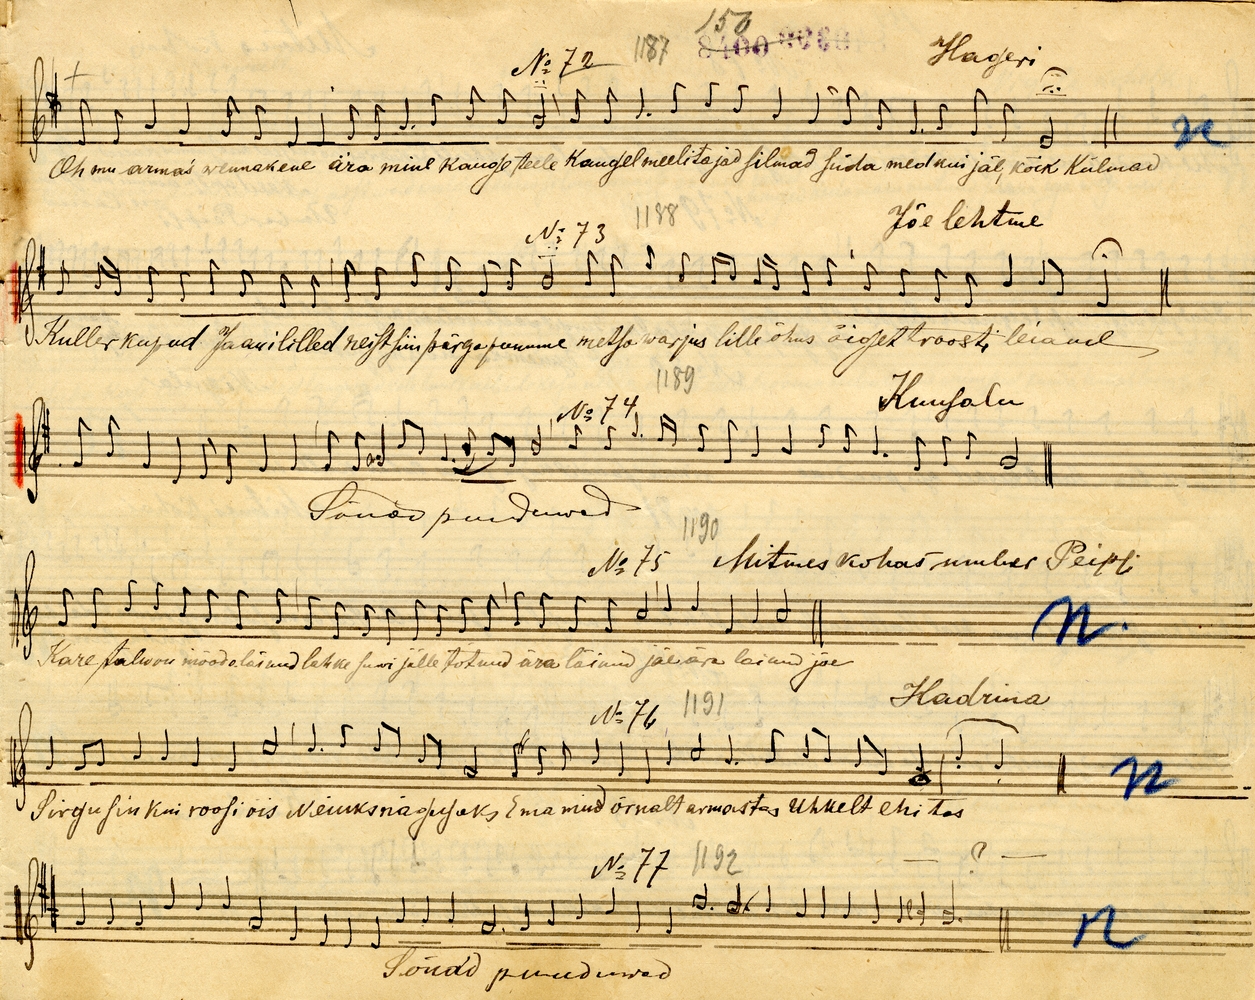 150
№ 72 1187 8400 Hageri
Oh mu armas wennakene ära mine kauge teele Kaugel meelitajad silmad süda med kui jäl, kõik Külmad
n
№ 73 1188 Jõelehtme
Kuller kupud Jaani lilled neist siis pärga punume metsa warjus lille õhus õiget troosti leiame
№ 74 1189 Kuusalu
Sõnad puuduwad
№ 75 1190 Mitmes kohas, number Peipsi
n.
Kare talwe on mööda läinud lahke suwi jälle tulnud ära läinud jäe ära läinud jäe
№ 76 1191 Hadrina
Sirgusin kui roosi õis Neiuks nägusaks, Ema mind õrnalt armastas Uhkelt ehitas
n
№ 77 1192 — ? —
n
Sõnad puuduwad